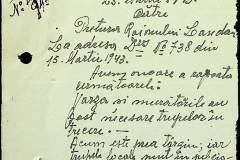 Către
Pretura Raionului Landău
La adresa Dvs № 738 din
15. Martie 1943.
Avem onoare a raporta
următoarele:
Varza și murăturile au
fost necesare trupelor în
trecere. —
Acum este prea târziu, iar
trupele locale sunt în